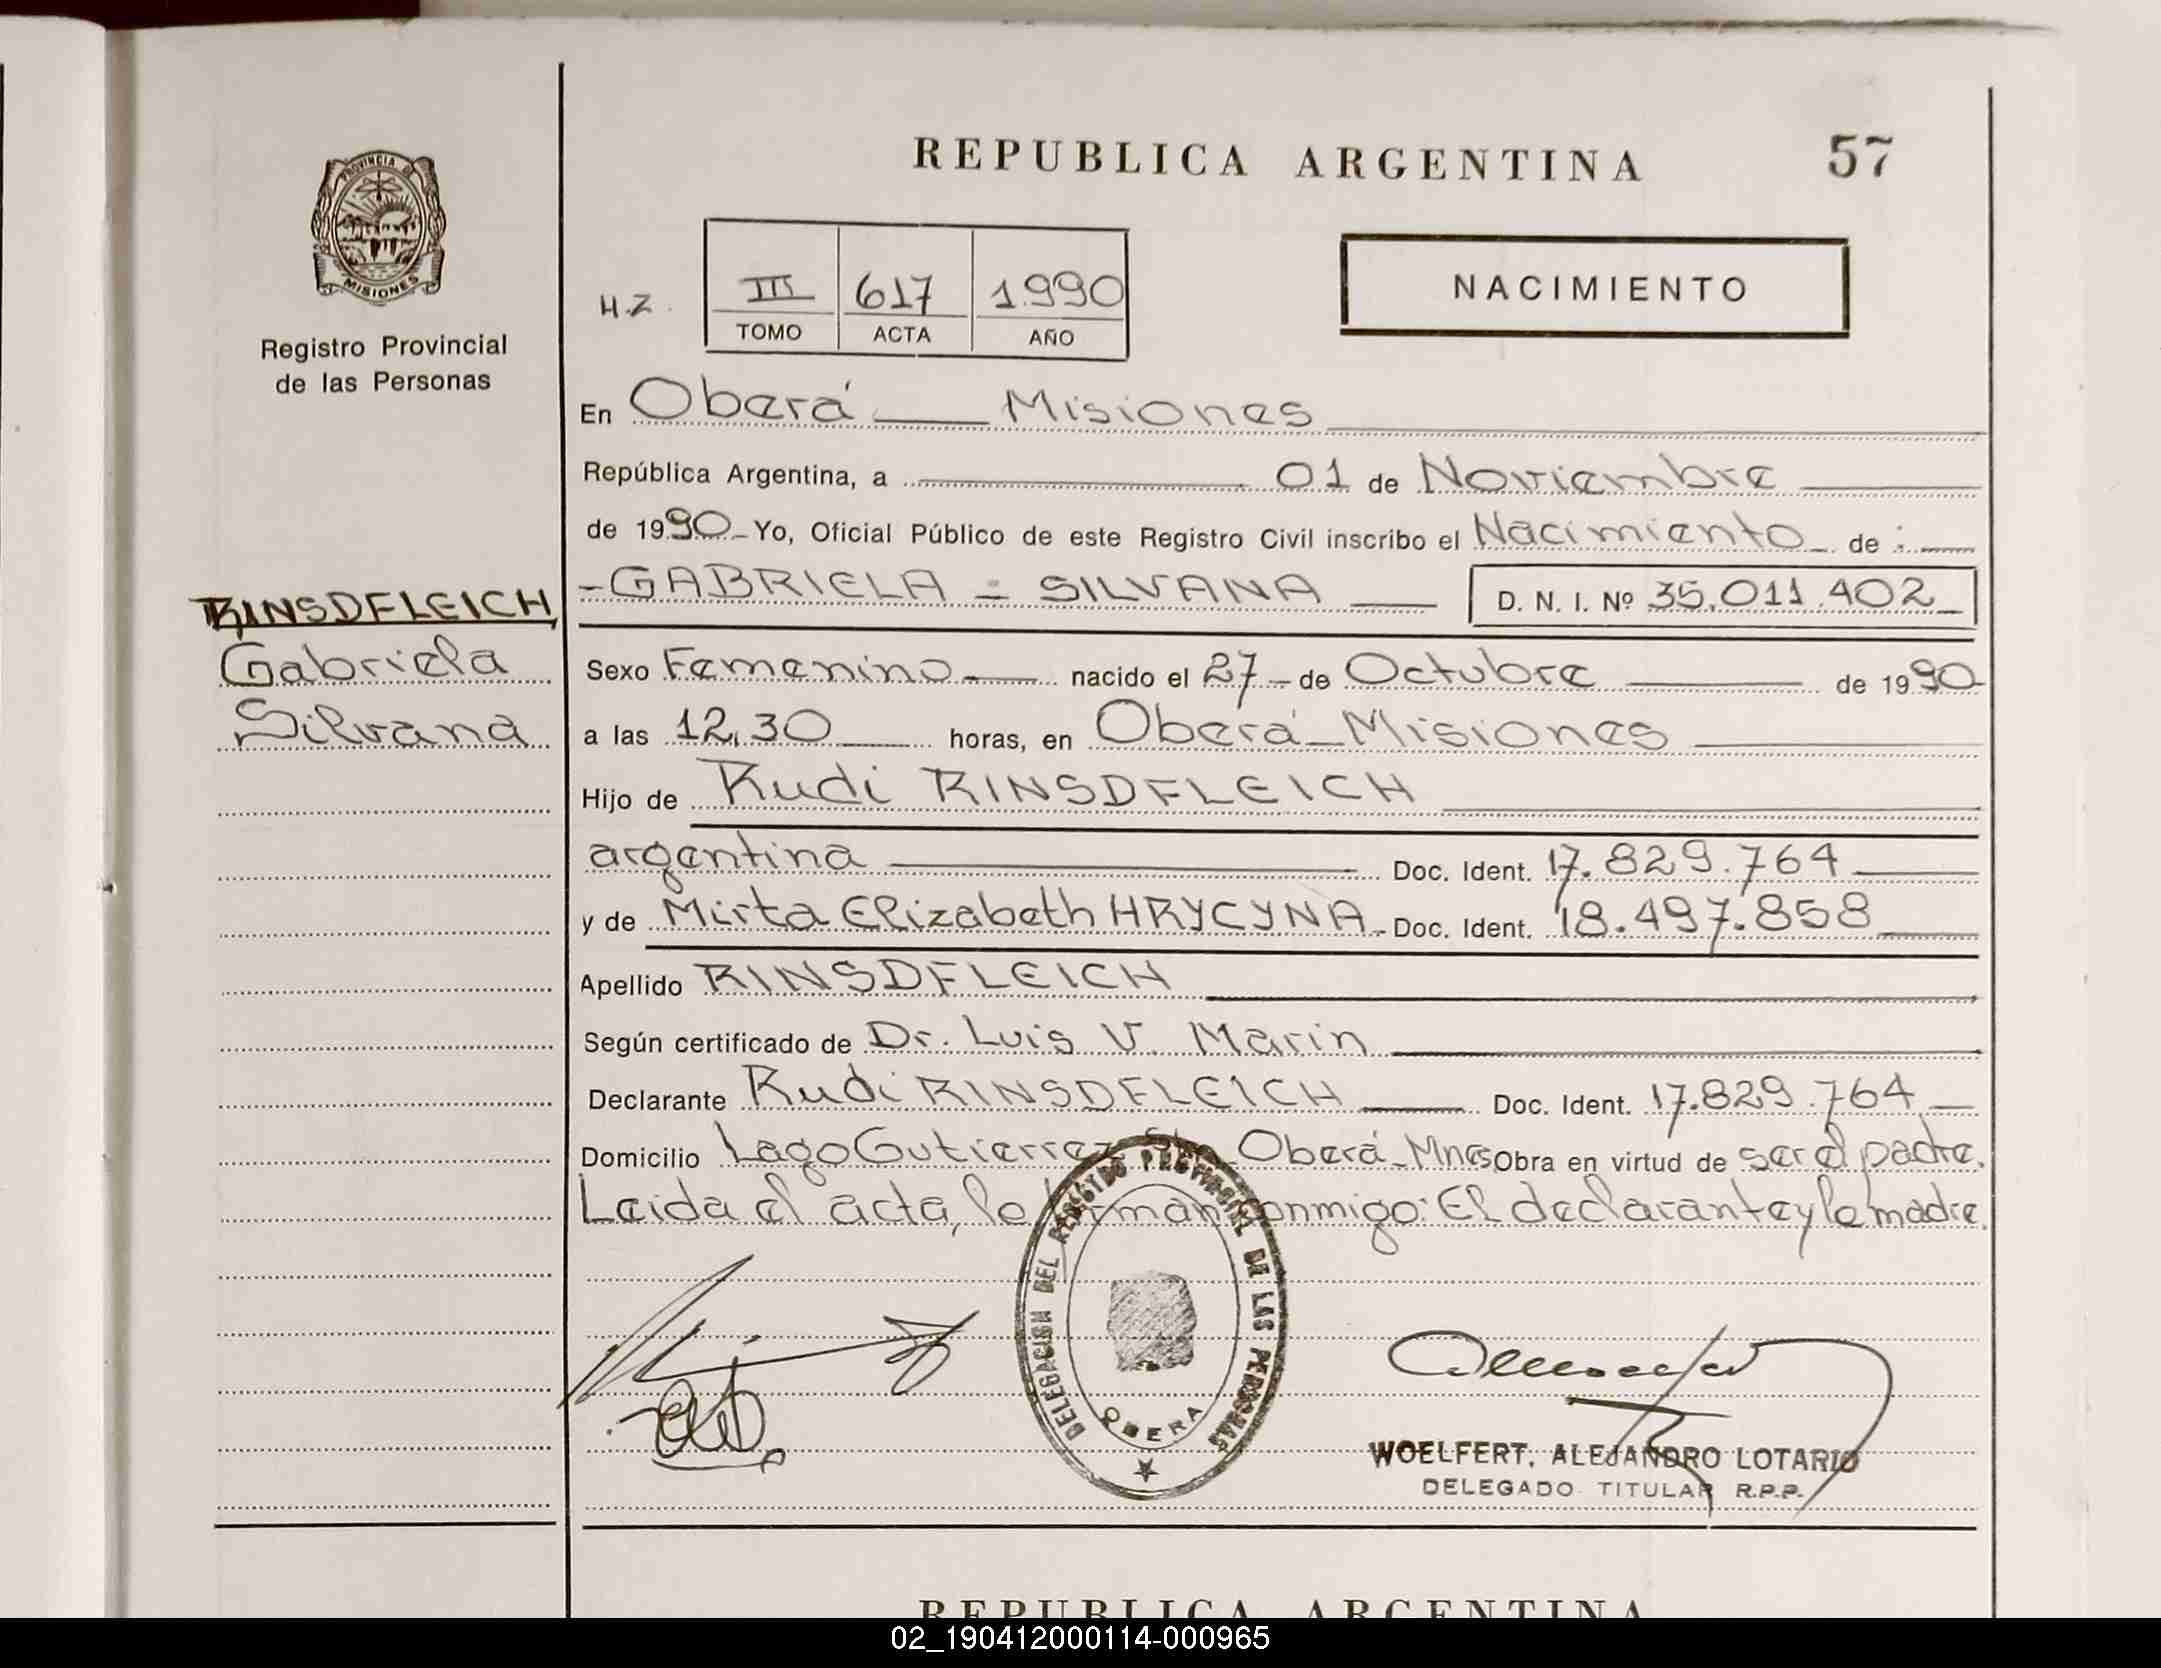 REPUBLICA ARGENTINA 57
PROVINCIA DE MISIONES
Registro Provincial
de las Personas
H.Z. III 617 1.990
TOMO ACTA AÑO
NACIMIENTO
En Oberá Misiones
República Argentina, a 01 de Noviembre
de 1990 Yo, Oficial Público de este Registro Civil inscribo el Nacimiento de :
- GABRIELA - SILVANA D. N. I. Nº 35.011.402
RINSDFLEICH
Gabriela
Silvana
Sexo Femenino nacido el 27 de Octubre de 1990
a las 12,30 horas, en Oberá - Misiones
Hijo de Rudi RINSDFLEICH
argentina Doc. Ident. 17.829.764
y de Mirta Elizabeth HRYCYNA - Doc. Ident. 18.497.858
Apellido RINSDFLEICH
Según certificado de Dr. Luis V. Marin
Declarante Rudi RINSDFLEICH Doc. Ident. 17.829.764
Domicilio Lago Gutierrez Oberá - Mnes Obra en virtud de ser el padre.
Leida el acta, la firman conmigo: El declarante y la madre.
DELEGACION DEL REGISTRO PROVINCIAL DE LAS PERSONAS
OBERA
WOELFERT, ALEJANDRO LOTARIO
DELEGADO TITULAR R.P.P.
REPUBLICA ARGENTINA
02_190412000114-000965